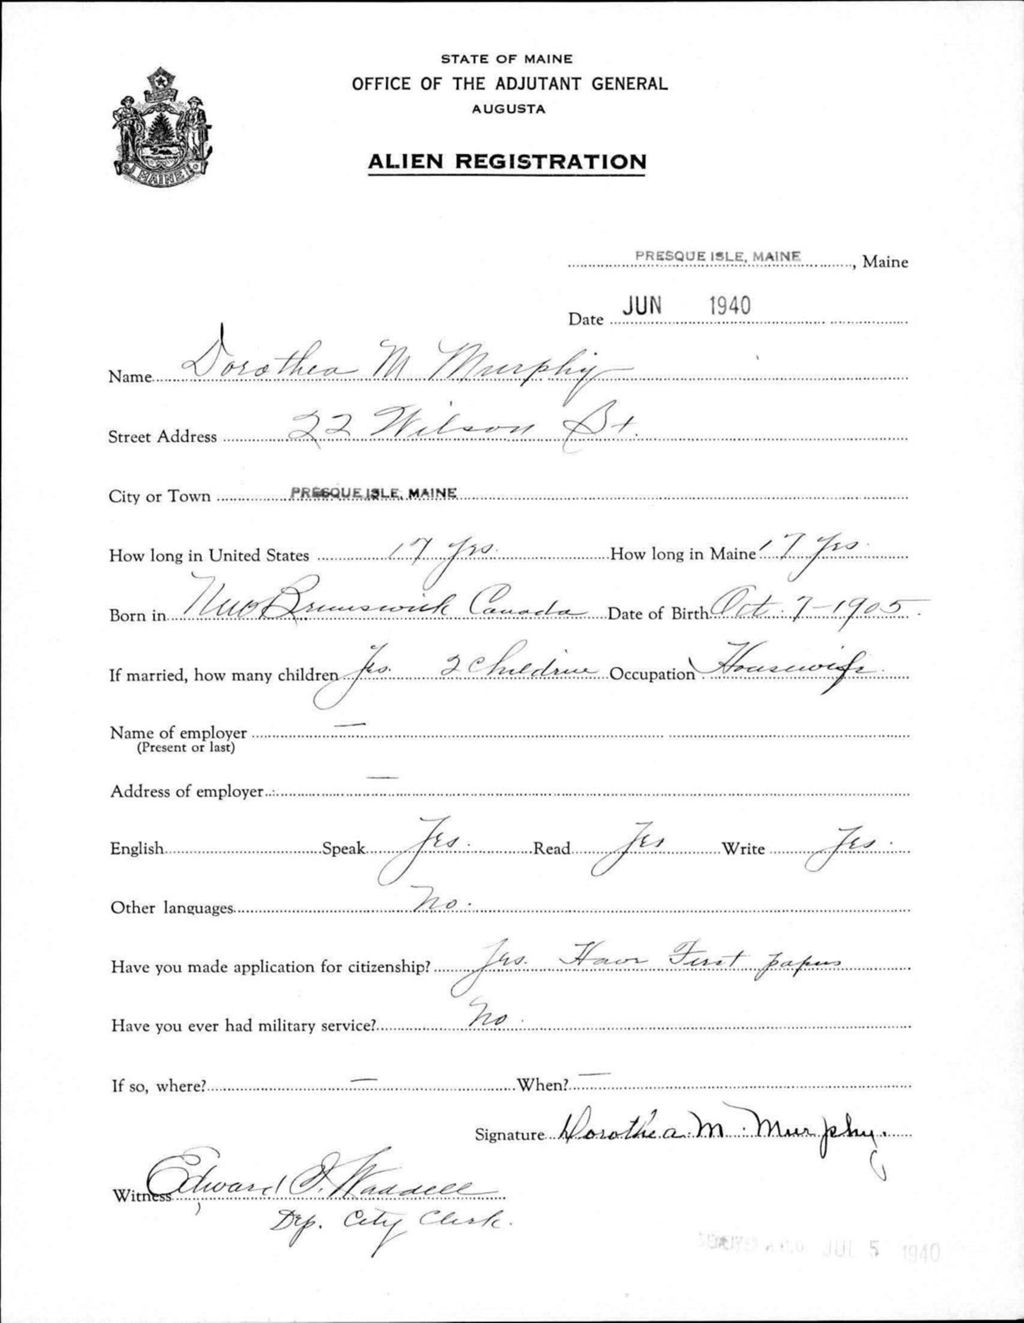 STATE OF MAINE
OFFICE OF THE ADJUTANT GENERAL
AUGUSTA
ALIEN REGISTRATION
MAINE
PRESQUE ISLE, MAINE, Maine
Date JUN 1940
Name Dorothea M Murphy
Street Address 22 Wilson St.
City or Town PRESQUE ISLE, MAINE
How long in United States 17 Yrs. How long in Maine 17 Yrs.
Born in New Brunswick Canada Date of Birth Oct. 7-1905.
If married, how many children Yes. 2 Children Occupation Housewife.
Name of employer —
(Present or last)
Address of employer —
English Speak Yes. Read Yes Write Yes.
Other languages No.
Have you made application for citizenship? Yes. Have First papers
Have you ever had military service? No.
If so, where? — When? —
Signature Dorothea M. Murphy.
Witness Edward J. Waddell
Dep. City Clerk.
JUL 5 1940